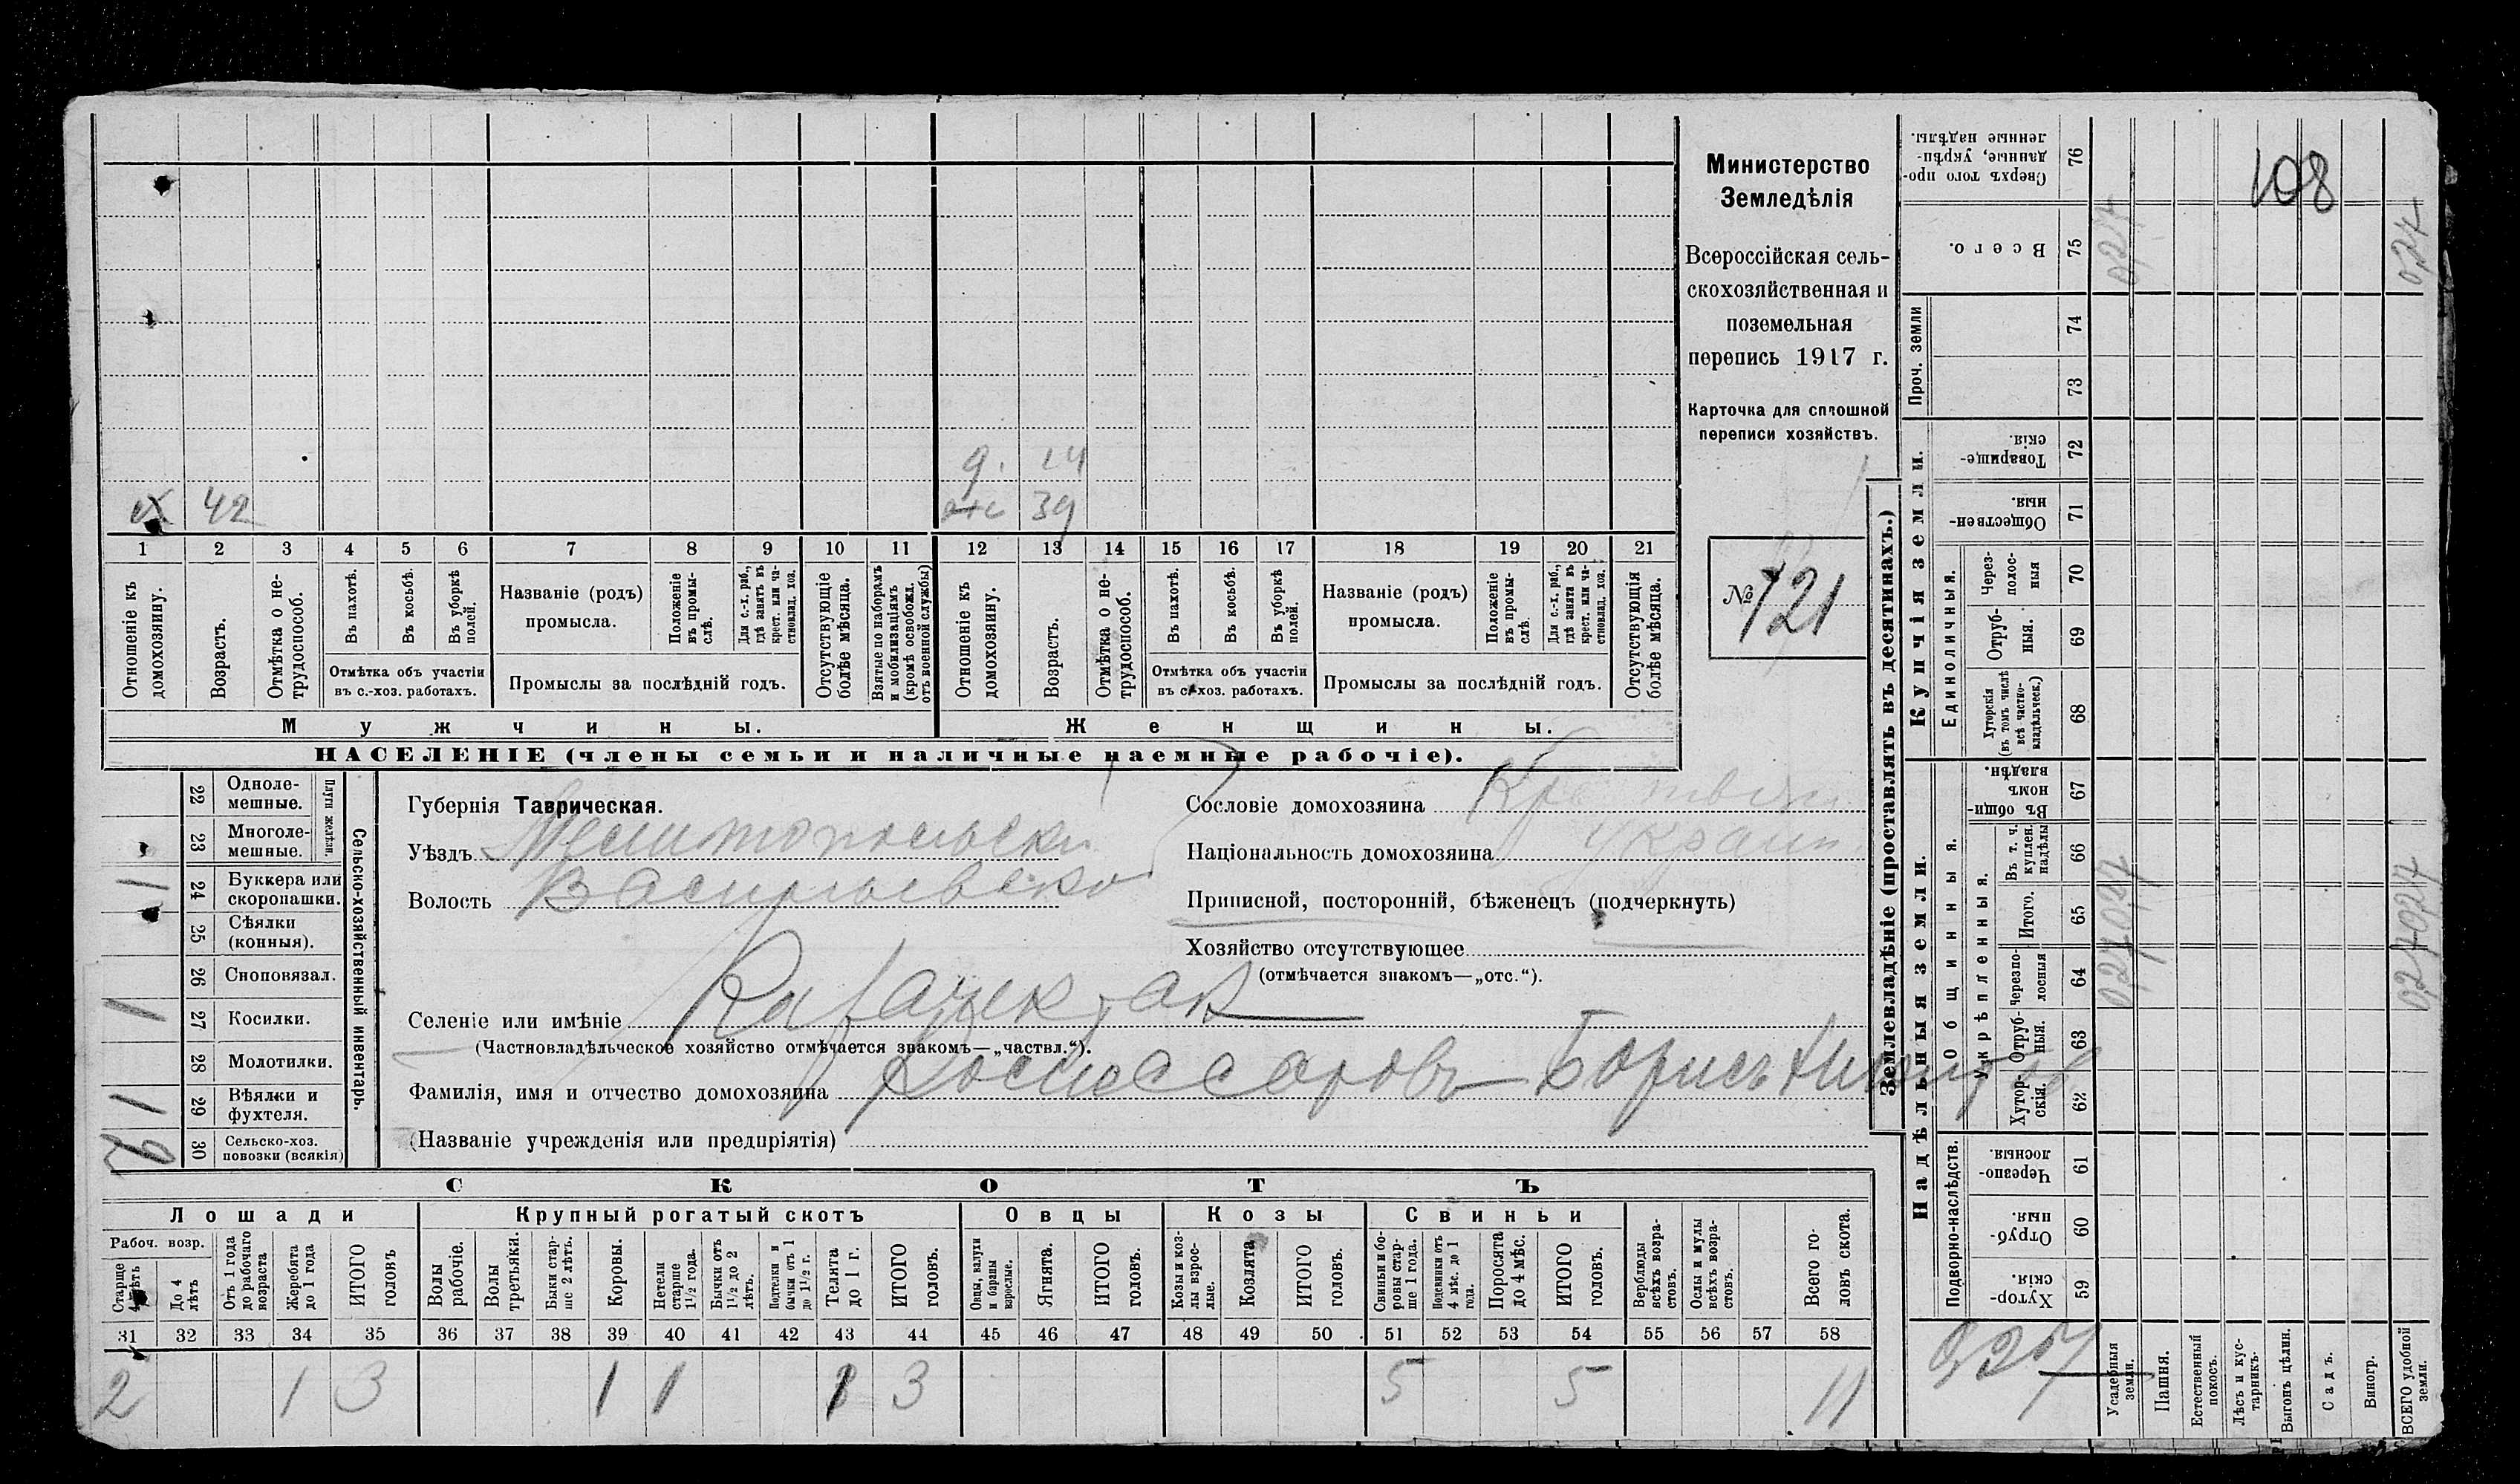 д. 14
х 42
39
1 2 3 4 5 6 7 8 9 10 11 12 13 14 15 16 17 18 19 20 21
Отношеніе къ домохозяину.
Возрастъ.
Отмѣтка о не-трудоспособ.
Въ пахотѣ.
Въ косьбѣ.
Въ уборкѣ полей.
Отмѣтка объ участіи въ с.-хоз. работахъ.
Названіе (родъ) промысла.
Положеніе въ промы-слѣ.
Для с.-х. раб., гдѣ занятъ въ крест. или ча-стновлад. хоз.
Промыслы за послѣдній годъ.
Отсутствующіе болѣе мѣсяца.
Взятые по наборамъ и мобилизаціямъ (кромѣ освобожд. отъ военной службы)
Отношеніе къ домохозяину.
Возрастъ.
Отмѣтка о не-трудоспособ.
Въ пахотѣ.
Въ косьбѣ.
Въ уборкѣ полей.
Отмѣтка объ участіи въ с.-хоз. работахъ.
Названіе (родъ) промысла.
Положеніе въ промы-слѣ.
Для с.-х. раб., гдѣ занята въ крест. или ча-стновлад. хоз.
Промыслы за послѣдній годъ.
Отсутствующія болѣе мѣсяца.
Мужчины.
Женщины.
НАСЕЛЕНІЕ (члены семьи и наличные наемные рабочіе).
Министерство
Земледѣлія
Всероссійская сель-
скохозяйственная и
поземельная
перепись 1917 г.
Карточка для сплошной
переписи хозяйствъ.
№ 121
22 Одноле-мешные.
23 Многоле-мешные.
Плуги желѣзн.
24 Буккера или скоропашки. 1
25 Сѣялки (конныя).
26 Сноповязал.
27 Косилки. 1
28 Молотилки.
29 Вѣялки и фухтеля. 1
30 Сельско-хоз. повозки (всякія)
Сельско-хозяйственный инвентарь.
Губернія Таврическая.
Уѣздъ Мелитопольски
Волость Васильевско
Сословіе домохозяина
Національность домохозяина Украин.
Приписной, посторонній, бѣженецъ (подчеркнуть)
Хозяйство отсутствующее
(отмѣчается знакомъ—„отс.“).
Селеніе или имѣніе
(Частновладѣльческое хозяйство отмѣчается знакомъ—„частвл.“).
Фамилія, имя и отчество домохозяина Борисъ
(Названіе учрежденія или предпріятія)
СКОТЪ
Лошади
Крупный рогатый скотъ
Овцы
Козы
Свиньи
Рабоч. возр.
Старше 4 лѣтъ
До 4 лѣтъ
Отъ 1 года до рабочаго возраста
Жеребята до 1 года
ИТОГО головъ
Волы рабочіе.
Волы третьяки.
Быки стар-ше 2 лѣтъ.
Коровы.
Нетели старше 1½ года.
Бычки отъ 1½ до 2 лѣтъ.
Подтелки и бычки отъ 1 до 1½ г.
Телята до 1 г.
ИТОГО головъ.
Овцы, валухи и бараны взрослые.
Ягнята.
ИТОГО головъ.
Козы и коз-лы взрос-лые.
Козлята
ИТОГО головъ.
Свиньи и бо-ровы стар-ше 1 года.
Подсвинки отъ 4 мѣс. до 1 года.
Поросята до 4 мѣс.
ИТОГО головъ.
Верблюды всѣхъ возра-стовъ.
Ослы и мулы всѣхъ возра-стовъ.
Всего го-ловъ скота.
31 32 33 34 35 36 37 38 39 40 41 42 43 44 45 46 47 48 49 50 51 52 53 54 55 56 57 58
2 1 3 1 1 1 3 5 5 11
Землевладѣніе (проставлять въ десятинахъ.)
Купчія земли.
Надѣльныя земли.
Сверхъ того про-данные, укрѣп-ленные надѣлы. 76
108
Всего. 75 0,27 0,27
Проч. земли
74
73
Товарище-скія. 72
Обществен-ныя. 71
Единоличныя.
Через-полос-ныя 70
Отруб-ныя. 69
Хуторскія (въ томъ числѣ всѣ частно-владѣльческ.) 68
Общинныя.
Въ общин-номъ владѣн. 67
Укрѣпленныя.
Въ т. ч. куплен. надѣлы 66
Итого. 65 0,27 0,27
Черезпо-лосныя 64 0,27 0,27
Отруб-ныя. 63
Хутор-скія. 62
Подворно-наслѣдств.
Черезпо-лосныя. 61
Отруб-ныя. 60
Хутор-скія. 59
0,27
Усадебныя земли.
Пашня.
Естественный покосъ.
Лѣсъ и кус-тарникъ.
Выгонъ цѣлин.
Садъ.
Виногр.
ВСЕГО удобной земли.